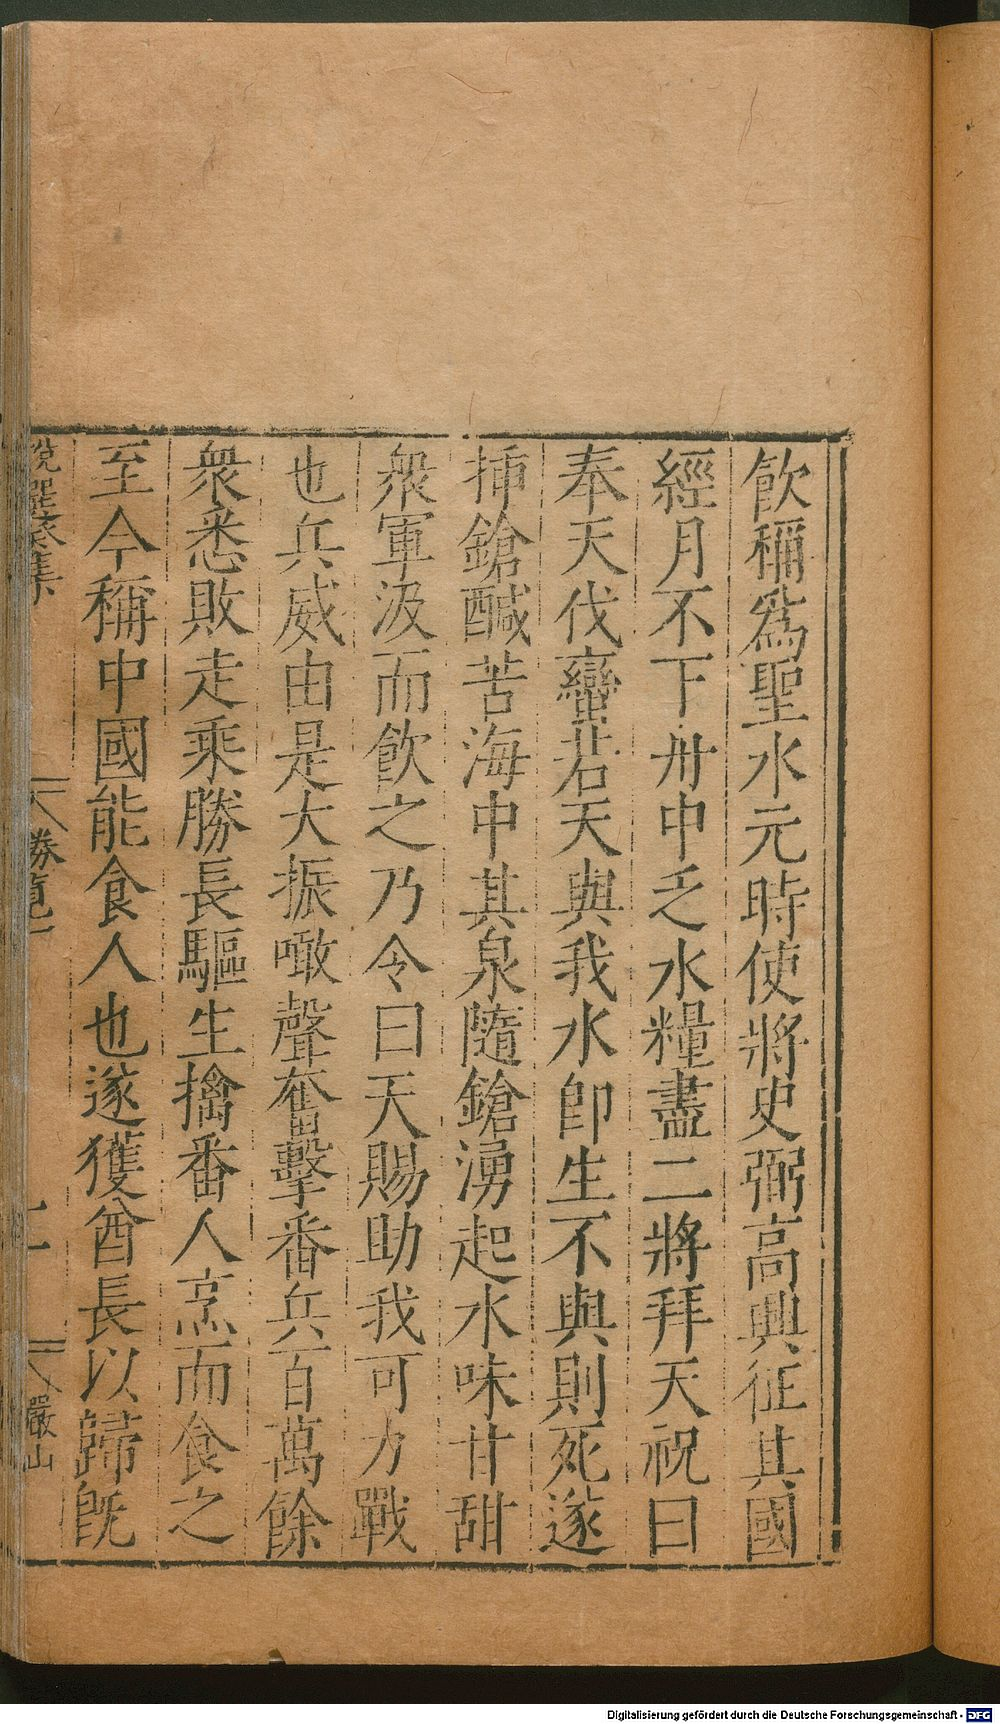 飲稱爲聖水元時使將史弼高興征其國
經月不下舟中乏水糧盡二將拜天祝曰
奉天伐蠻若天與我水卽生不與則死遂
揷鎗醎苦海中其泉隨鎗湧起水味甘甜
衆軍汲而飲之乃令曰天賜助我可力戰
也兵威由是大振噉聲奮擊番兵百萬餘
衆悉敗走乘勝長驅生擒番人烹而食之
至今稱中國能食人也遂獲酋長以歸旣
說選癸集 勝覽一 二 嚴山
Digitalisierung gefördert durch die Deutsche Forschungsgemeinschaft - DFG